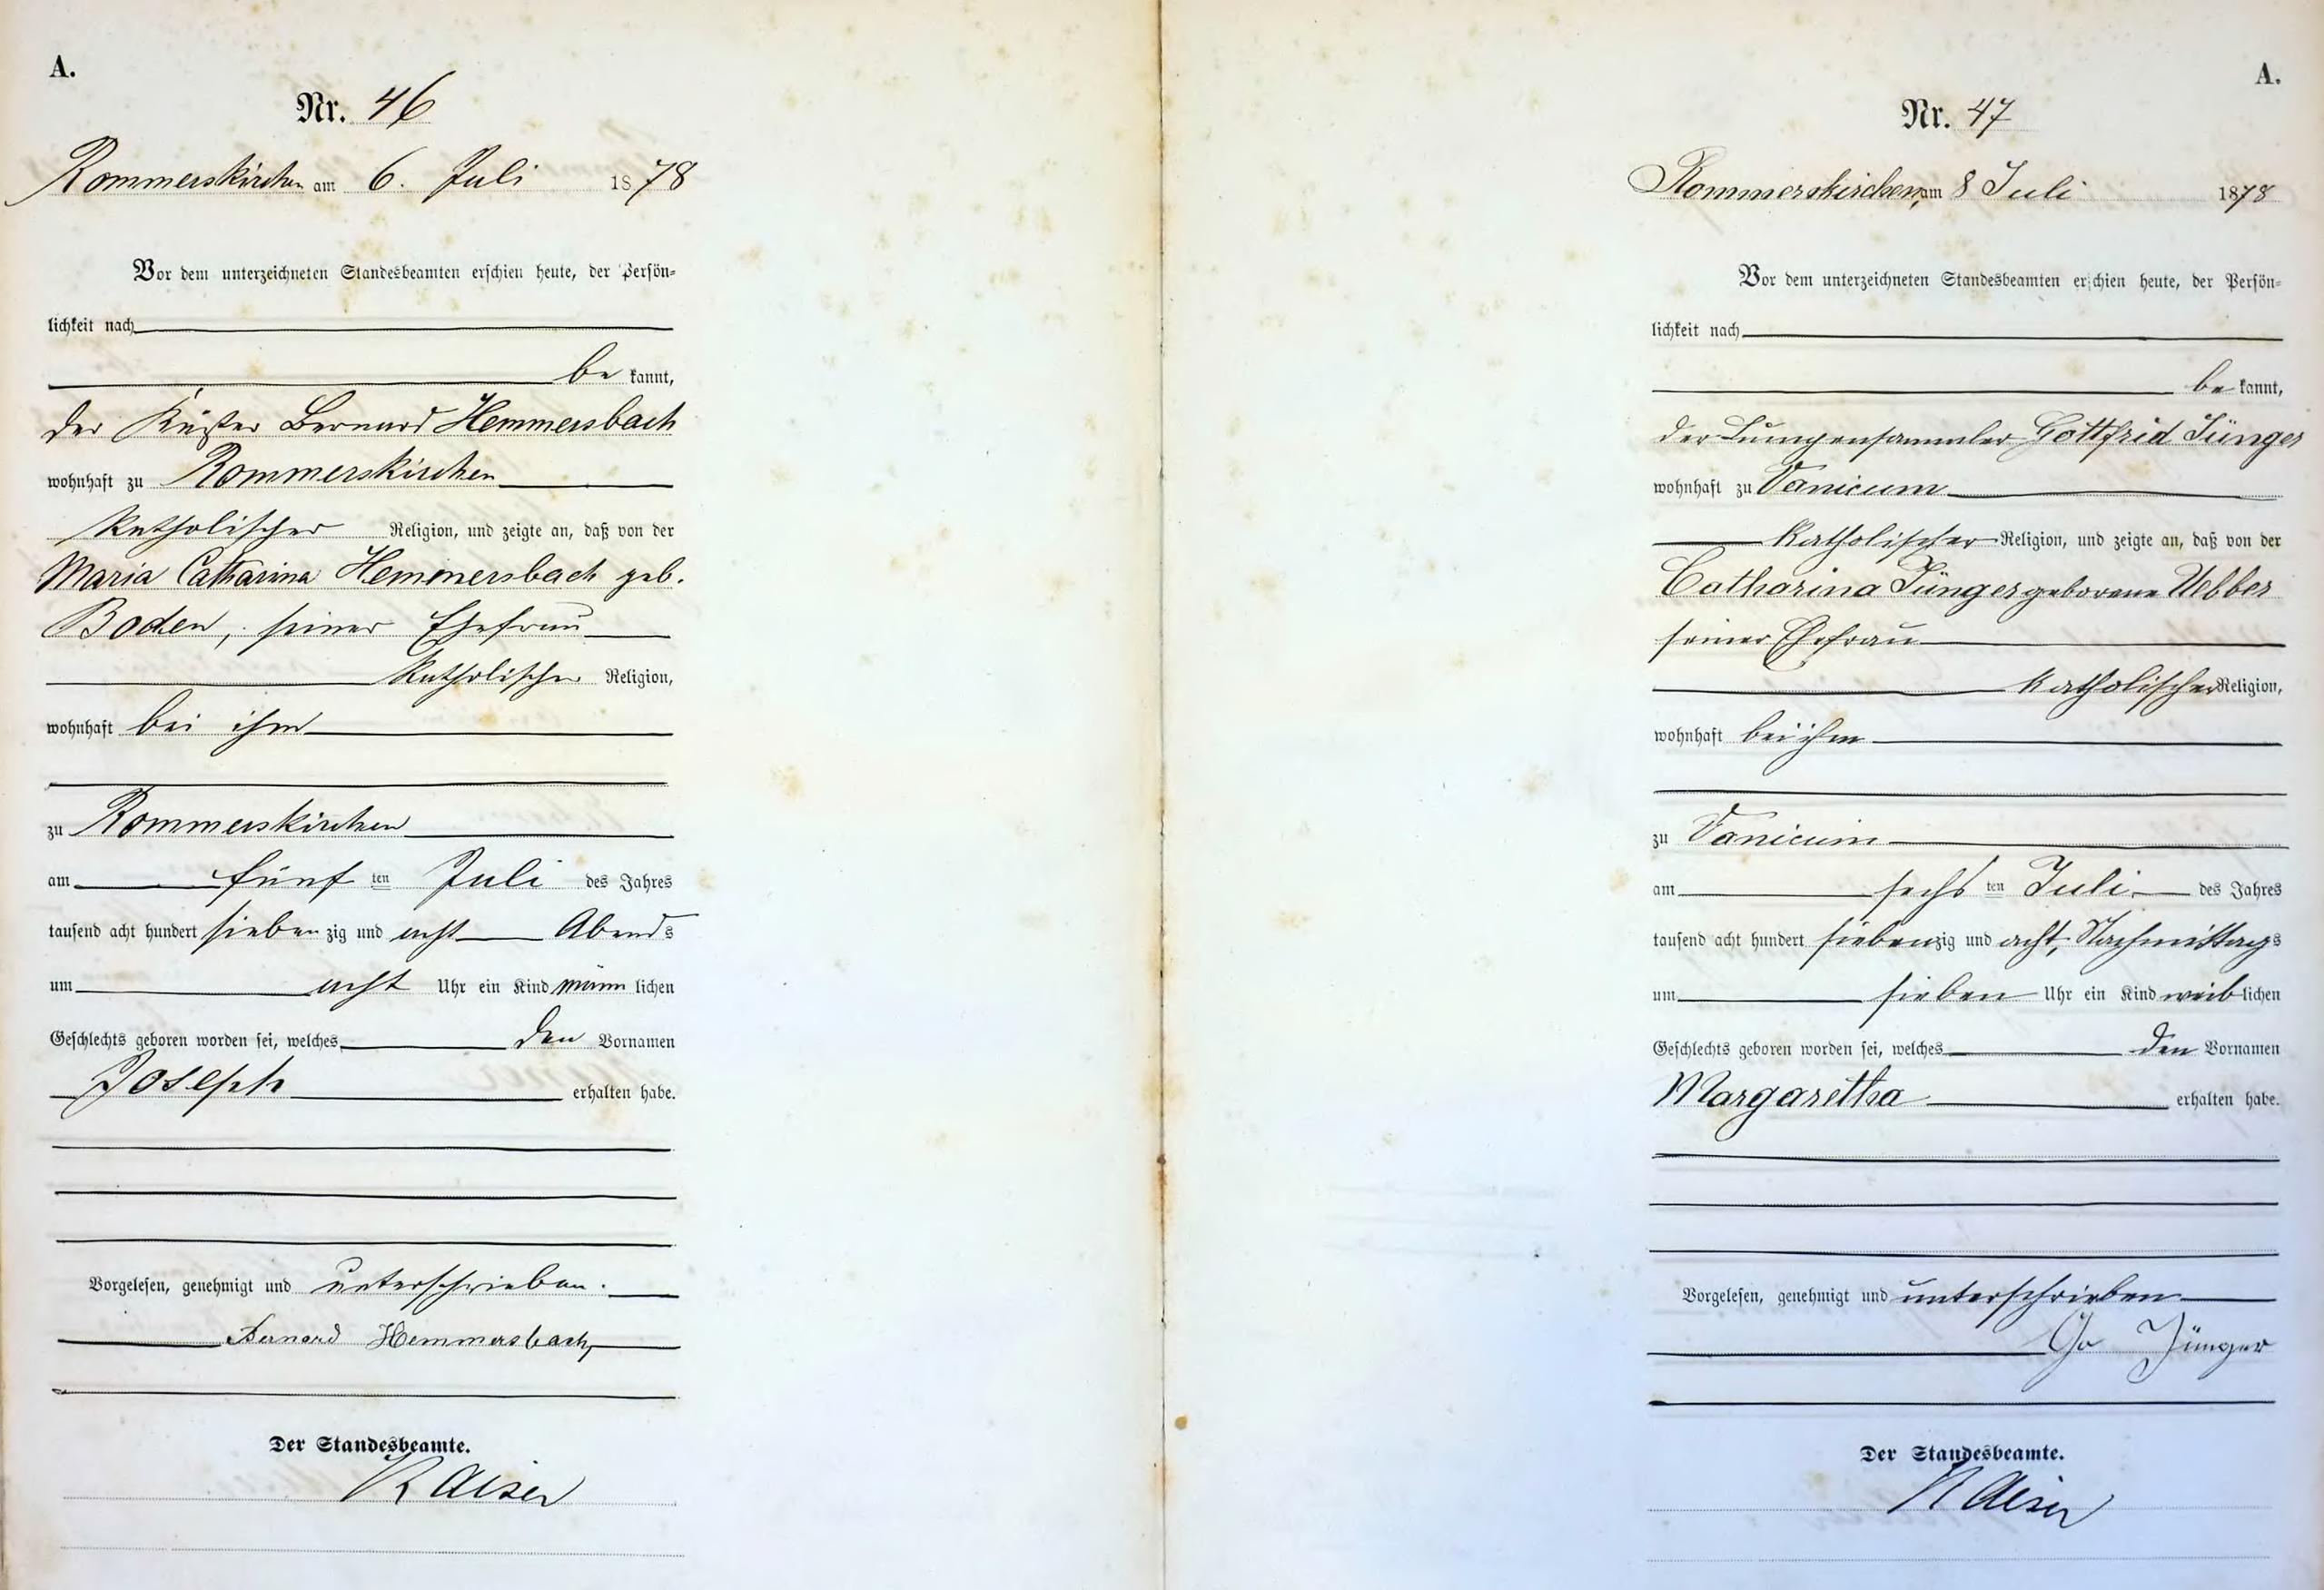 A.
Nr. 46
Rommerskirchen am 6. Juli 1878
Vor dem unterzeichneten Standesbeamten erschien heute, der Persön-
lichkeit nach
be kannt,
der Küster Bernard Hemmersbach
wohnhaft zu Rommerskirchen
katholischer Religion, und zeigte an, daß von der
Maria Catharina Hemmersbach geb.
Boden, seiner Ehefrau
katholischer Religion,
wohnhaft bei ihm
zu Rommerskirchen
am fünf ten Juli des Jahres
tausend acht hundert sieben zig und acht Abends
um acht Uhr ein Kind männ lichen
Geschlechts geboren worden sei, welches den Vornamen
Joseph erhalten habe.
Vorgelesen, genehmigt und unterschrieben.
Bernard Hemmersbach
Der Standesbeamte.
Kaiser
A.
Nr. 47
Rommerskirchen, am 8 Juli 1878
Vor dem unterzeichneten Standesbeamten erschien heute, der Persön-
lichkeit nach
be kannt,
der Lumpensammler Gottfrid Jünger
wohnhaft zu Vanicum
katholischer Religion, und zeigte an, daß von der
Catharina Jünger geborene Uebber
seiner Ehefrau
katholischer Religion,
wohnhaft bei ihm
zu Vanicum
am sechs ten Juli des Jahres
tausend acht hundert siebenzig und acht, Nachmittags
um sieben Uhr ein Kind weib lichen
Geschlechts geboren worden sei, welches den Vornamen
Margaretha erhalten habe.
Vorgelesen, genehmigt und unterschrieben
Go Jünger
Der Standesbeamte.
Kaiser